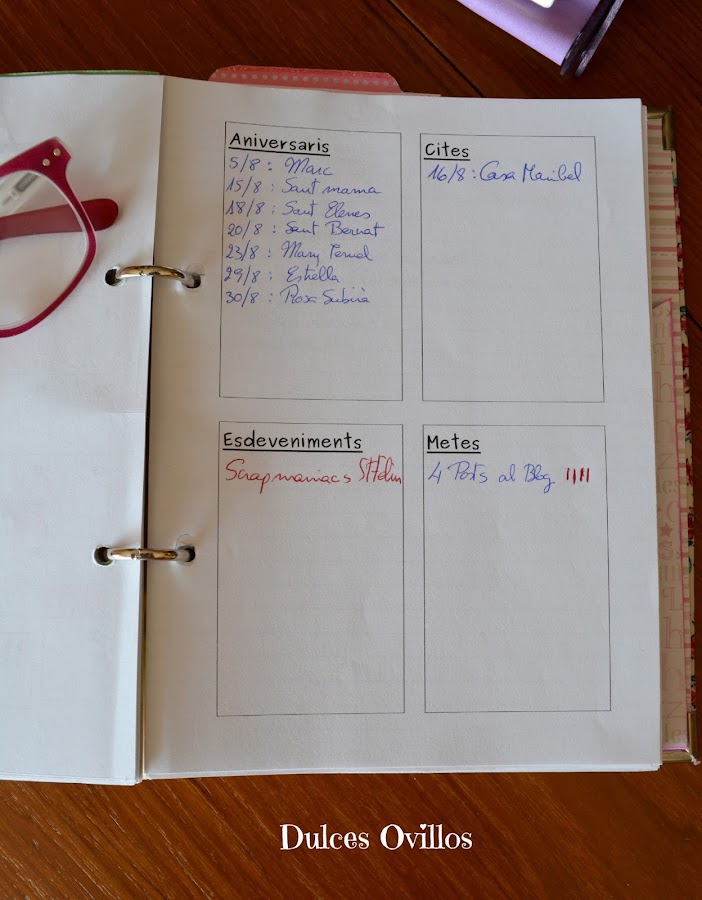 Aniversaris
5/8 : Marc
15/8 : Sant mama
18/8 : Sant Elenes
20/8 : Sant Bernat
23/8 : Mary
29/8 : Estrella
30/8 : Rosa Subirà
Cites
16/8 : Casa Maribel
Esdeveniments
Scrapmaniacs St Feliu
Metes
4 Posts al Blog
Dulces Ovillos